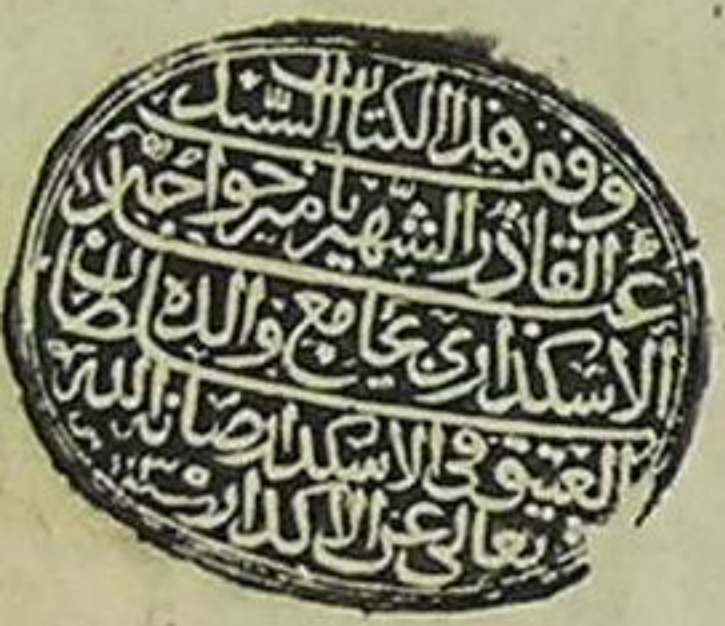 وقف هذا الكتاب السيد
عبد القادر الشهير بامير خواجه
الاسكدارى بجامع والده سلطان
العتيق فى الاسكدار صانه الله
تعالى عن الاكدار